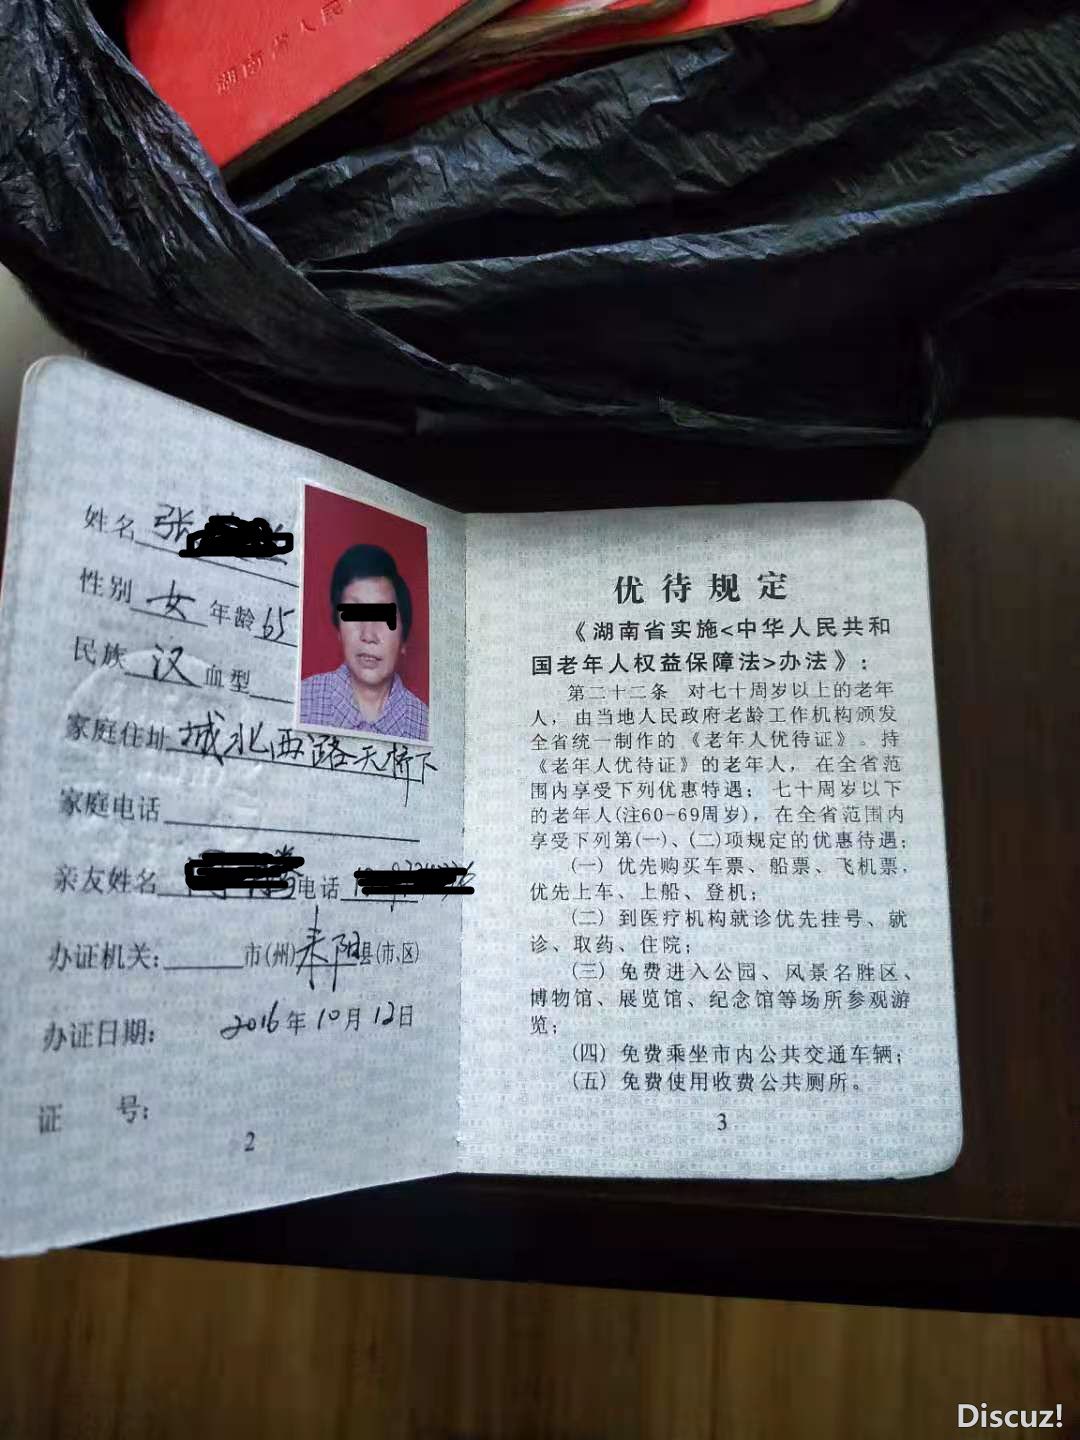 湖南省人民
姓名 张
性别 女 年龄 65
民族 汉 血型
家庭住址 城北西路天桥下
家庭电话
亲友姓名 电话
办证机关: 市(州)耒阳县(市、区)
办证日期: 2016年10月12日
证 号:
2
优待规定
《湖南省实施<中华人民共和
国老年人权益保障法>办法》:
第二十二条 对七十周岁以上的老年
人, 由当地人民政府老龄工作机构颁发
全省统一制作的《老年人优待证》。持
《老年人优待证》的老年人, 在全省范
围内享受下列优惠特遇; 七十周岁以下
的老年人(注60-69周岁), 在全省范围内
享受下列第(一)、(二)项规定的优惠待遇;
(一) 优先购买车票、船票、飞机票,
优先上车、上船、登机;
(二) 到医疗机构就诊优先挂号、就
诊、取药、住院;
(三) 免费进入公园、风景名胜区、
博物馆、展览馆、纪念馆等场所参观游
览;
(四) 免费乘坐市内公共交通车辆;
(五) 免费使用收费公共厕所。
3
Discuz!